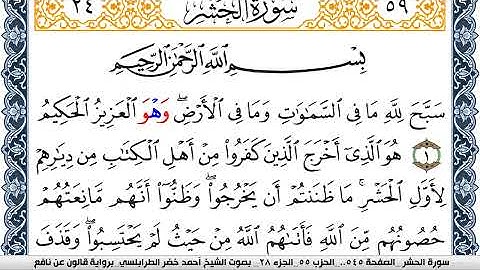 ٢٤ سُورَةُ الحَشْرِ ٥٩
بِسْمِ اللَّهِ الرَّحْمَٰنِ الرَّحِيمِ
سَبَّحَ لِلَّهِ مَا فِي السَّمَٰوَٰتِ وَمَا فِي الْأَرْضِۖ وَهْوَ الْعَزِيزُ الْحَكِيمُ
١ هُوَ الَّذِيٓ أَخْرَجَ الَّذِينَ كَفَرُواْ مِنْ أَهْلِ الْكِتَٰبِ مِن دِيٰرِهِمْ
لِأَوَّلِ الْحَشْرِۖ مَا ظَنَنتُمْ أَنْ يَخْرُجُواْۖ وَظَنُّوٓاْ أَنَّهُم مَّانِعَتُهُمْ
حُصُونُهُم مِّنَ اللَّهِ فَأَتَىٰهُمُ اللَّهُ مِنْ حَيْثُ لَمْ يَحْتَسِبُواْۖ وَقَذَفَ
سورة الحشر_ الصفحة ٥٤٥.. الحزب ٥٥_الجزء ٢٨_ بصوت الشيخ أحمد خضر الطرابلسي_برواية قالون عن نافع